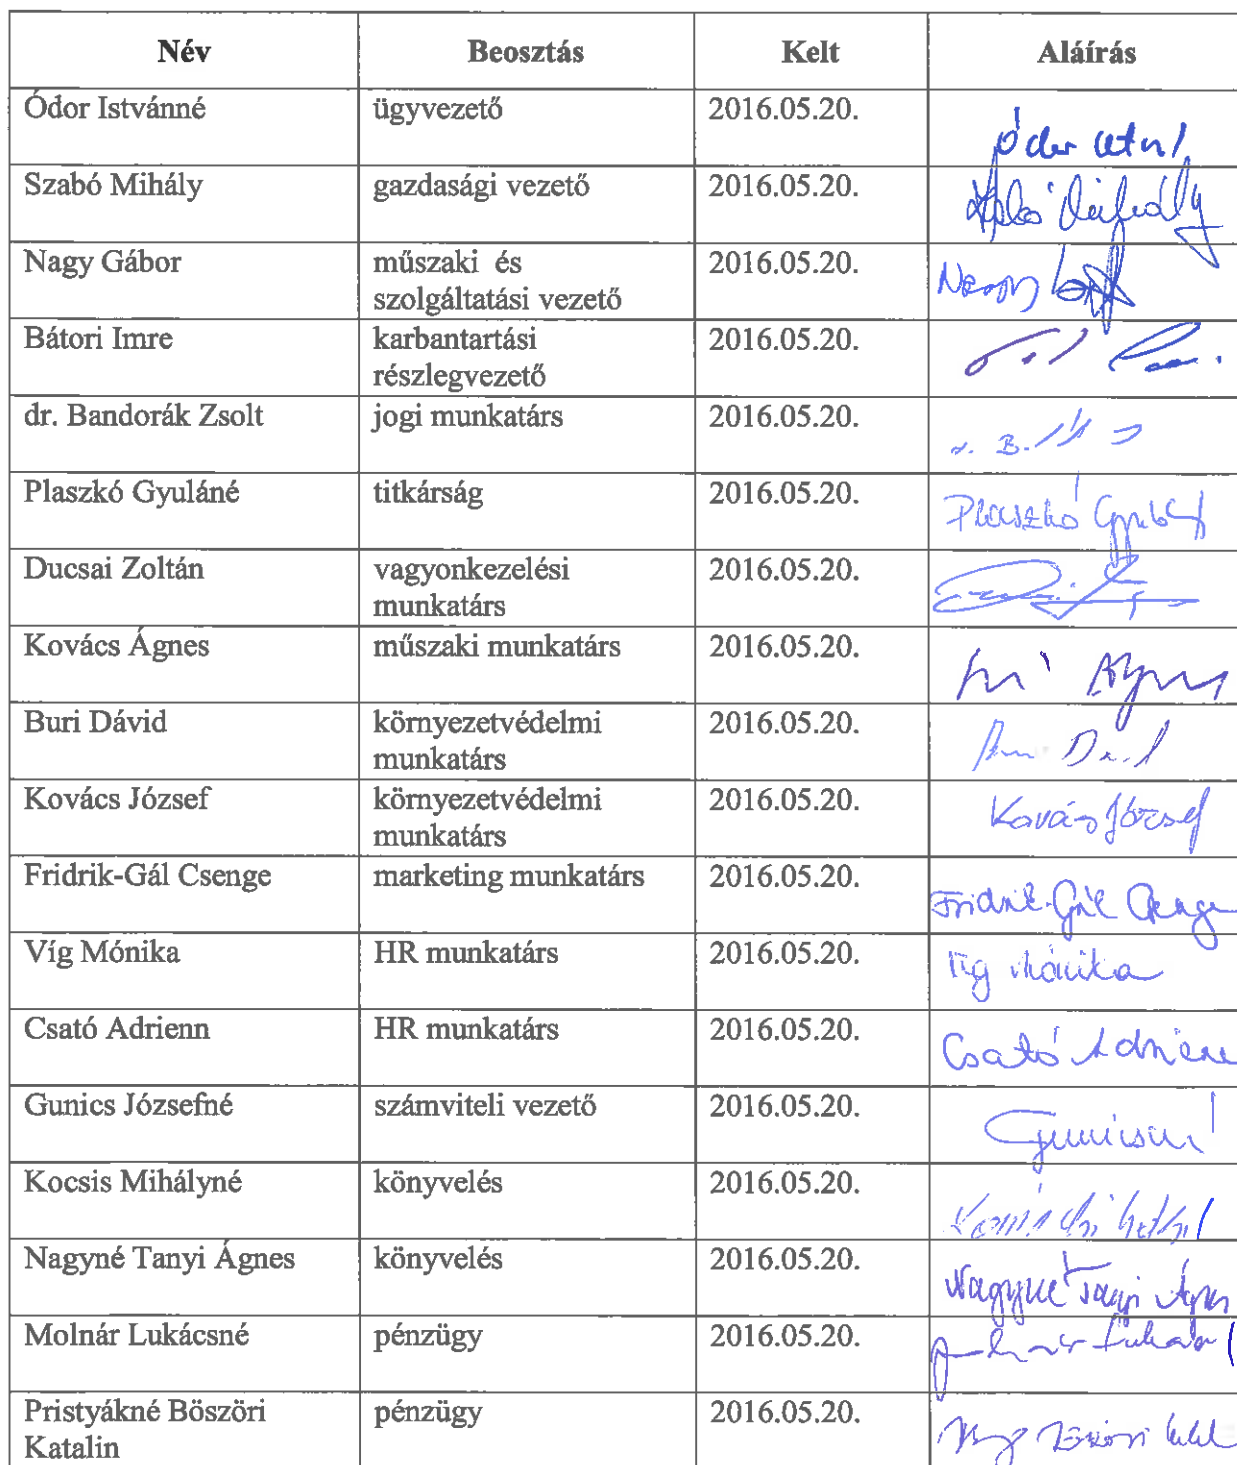 Név Beosztás Kelt Aláírás
Ódor Istvánné ügyvezető 2016.05.20.
Szabó Mihály gazdasági vezető 2016.05.20.
Nagy Gábor műszaki és 2016.05.20.
szolgáltatási vezető
Bátori Imre karbantartási 2016.05.20.
részlegvezető
dr. Bandorák Zsolt jogi munkatárs 2016.05.20.
Plaszkó Gyuláné titkárság 2016.05.20. Plaszkó
Ducsai Zoltán vagyonkezelési 2016.05.20.
munkatárs
Kovács Ágnes műszaki munkatárs 2016.05.20.
Buri Dávid környezetvédelmi 2016.05.20.
munkatárs
Kovács József környezetvédelmi 2016.05.20. Kovács József
munkatárs
Fridrik-Gál Csenge marketing munkatárs 2016.05.20. Fridrik-Gál Csenge
Víg Mónika HR munkatárs 2016.05.20. Víg Mónika
Csató Adrienn HR munkatárs 2016.05.20. Csató Adrienn
Gunics Józsefné számviteli vezető 2016.05.20. Gunicsné
Kocsis Mihályné könyvelés 2016.05.20.
Nagyné Tanyi Ágnes könyvelés 2016.05.20. Nagyné Tanyi Ágnes
Molnár Lukácsné pénzügy 2016.05.20.
Pristyákné Böszöri pénzügy 2016.05.20.
Katalin